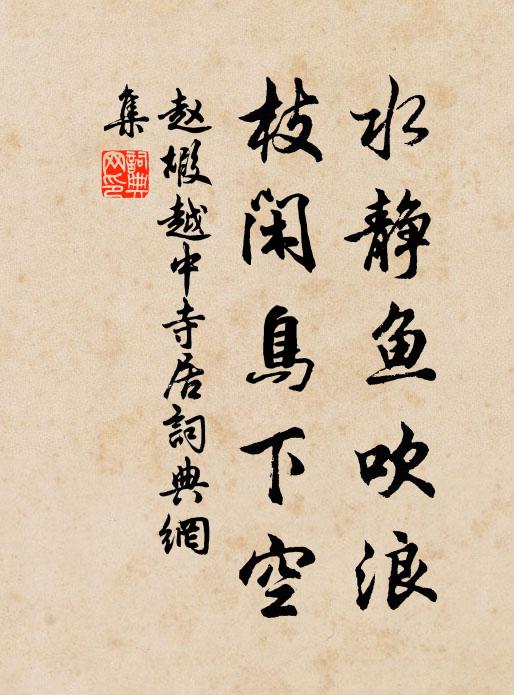 水静鱼吹浪
枝闲鸟下空
赵嘏越中寺居詞典網
集
詞典
网印